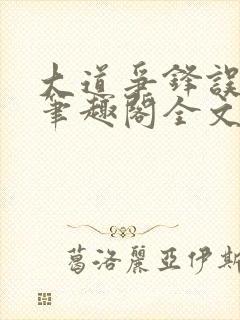 大道爭鋒誤
筆趣閣全文
葛洛麗亞伊斯